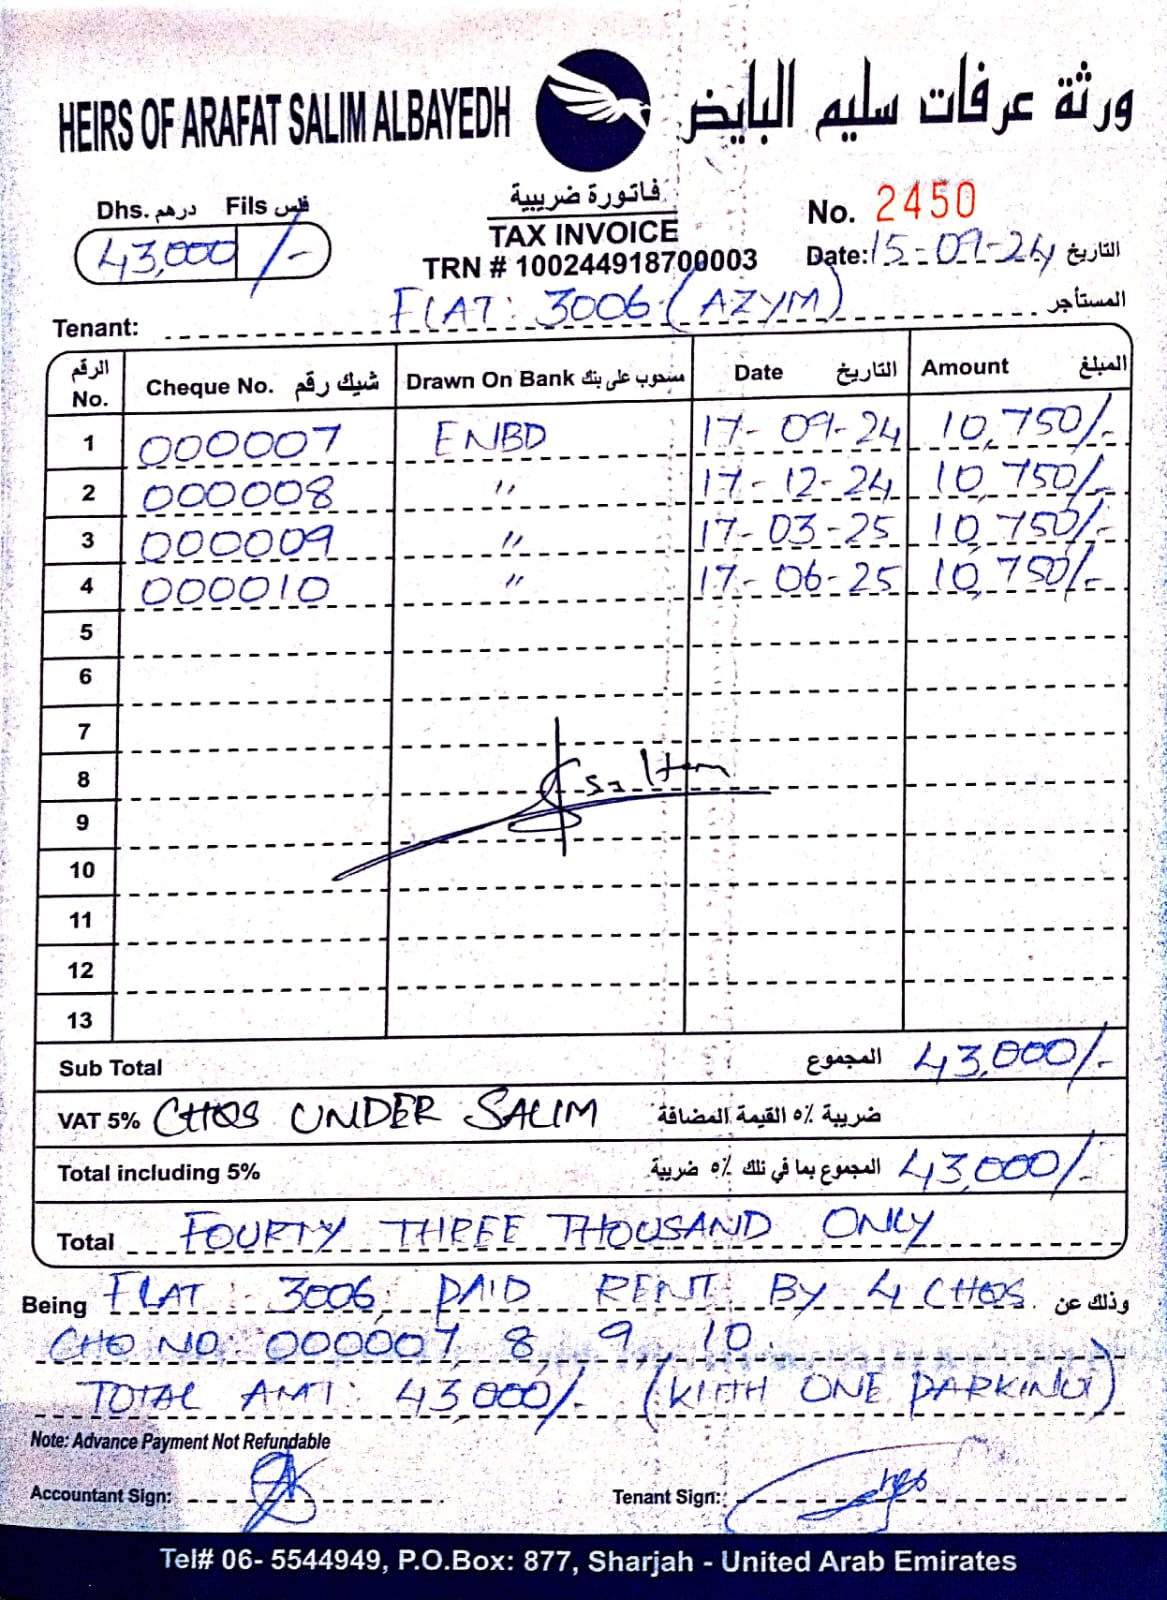 HEIRS OF ARAFAT SALIM ALBAYEDH ورثة عرفات سليم البايض
Dhs. درهم Fils فلس
43,000 /-
فاتورة ضريبية
TAX INVOICE
TRN # 100244918700003
No. 2450
Date: 15-09-24 التاريخ
Tenant: FLAT: 3006 (AZYM) المستأجر
الرقم No. Cheque No. شيك رقم Drawn On Bank مسحوب على بنك Date التاريخ Amount المبلغ
1 000007 ENBD 17-09-24 10,750/-
2 000008 " 17-12-24 10,750/-
3 000009 " 17-03-25 10,750/-
4 000010 " 17-06-25 10,750/-
5
6
7
8
9
10
11
12
13
Sub Total المجموع 43,000/-
VAT 5% CHQS UNDER SALIM ضريبة ٥% القيمة المضافة
Total including 5% المجموع بما في ذلك ٥% ضريبة 43,000/-
Total FOURTY THREE THOUSAND ONLY
Being FLAT: 3006, PAID RENT BY 4 CHQS. وذلك عن
CHQ NO: 000007, 8, 9, 10.
TOTAL AMT: 43,000/- (WITH ONE PARKING)
Note: Advance Payment Not Refundable
Accountant Sign: Tenant Sign:
Tel# 06- 5544949, P.O.Box: 877, Sharjah - United Arab Emirates